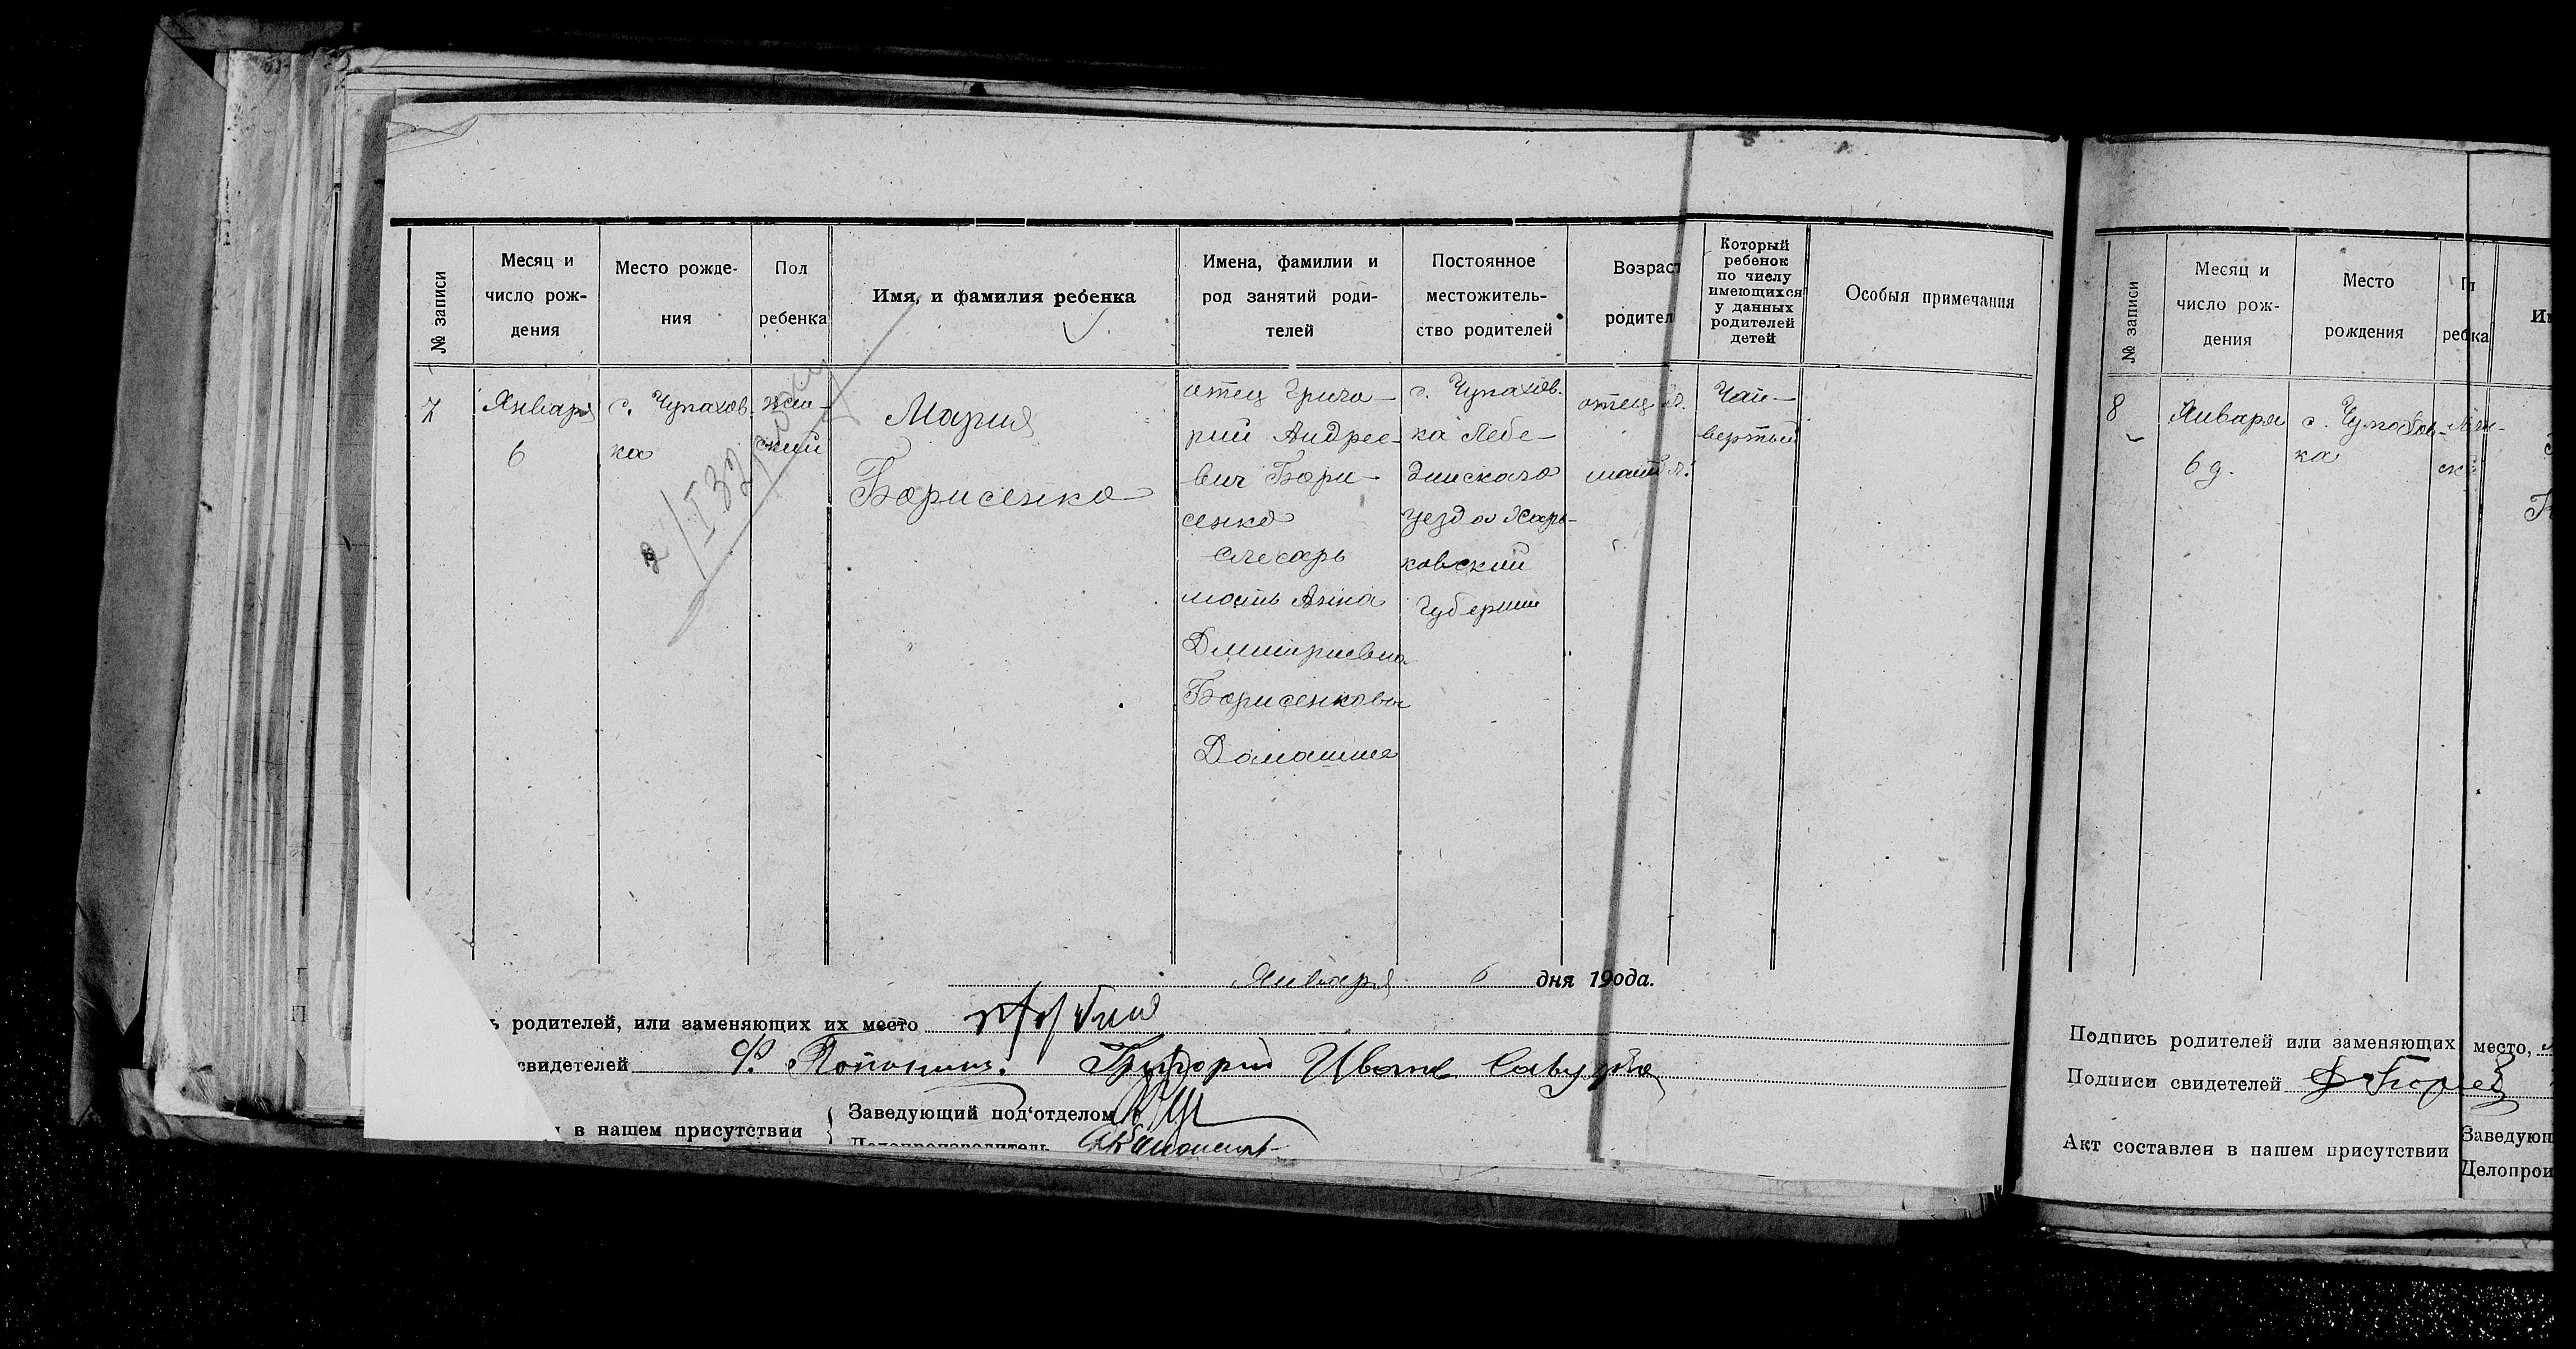 № записи
Месяц и
число рож-
дения
Место рожде-
ния
Пол
ребенка
Имя, и фамилия ребенка
Имена, фамилии и
род занятий роди-
телей
Постоянное
местожитель-
ство родителей
Возраст
родител
Который
ребенок
по числу
имеющихся
у данных
родителей
детей
Особыя примечания
7
Января
6
с. Чупахов
ка
жен-
ский
Мария
Борисенко
отец Григо-
рий Андрее-
вич Бори-
сенко
слесарь
мать Анна
Дмитриевна
Борисенковы
Домашние
с. Чупахов.
ка Лебе-
динского
уезда Харь-
ковский
губернии
отец
мать
Чет-
вертый
2/I 32
Января 6 дня 190ода.
ь родителей, или заменяющих их место
свидетелей
Григорий Иванов
в нашем присутствии
Заведующий под'отделом
Делопроизводитель
№ записи
Месяц и
число рож-
дения
Место
рождения
П
ребка
8
Января
6 д.
с. Чупахов-
ка
Подпись родителей или заменяющих место,
Подписи свидетелей
Акт составлен в нашем присутствии
Заведующ
Делопрои